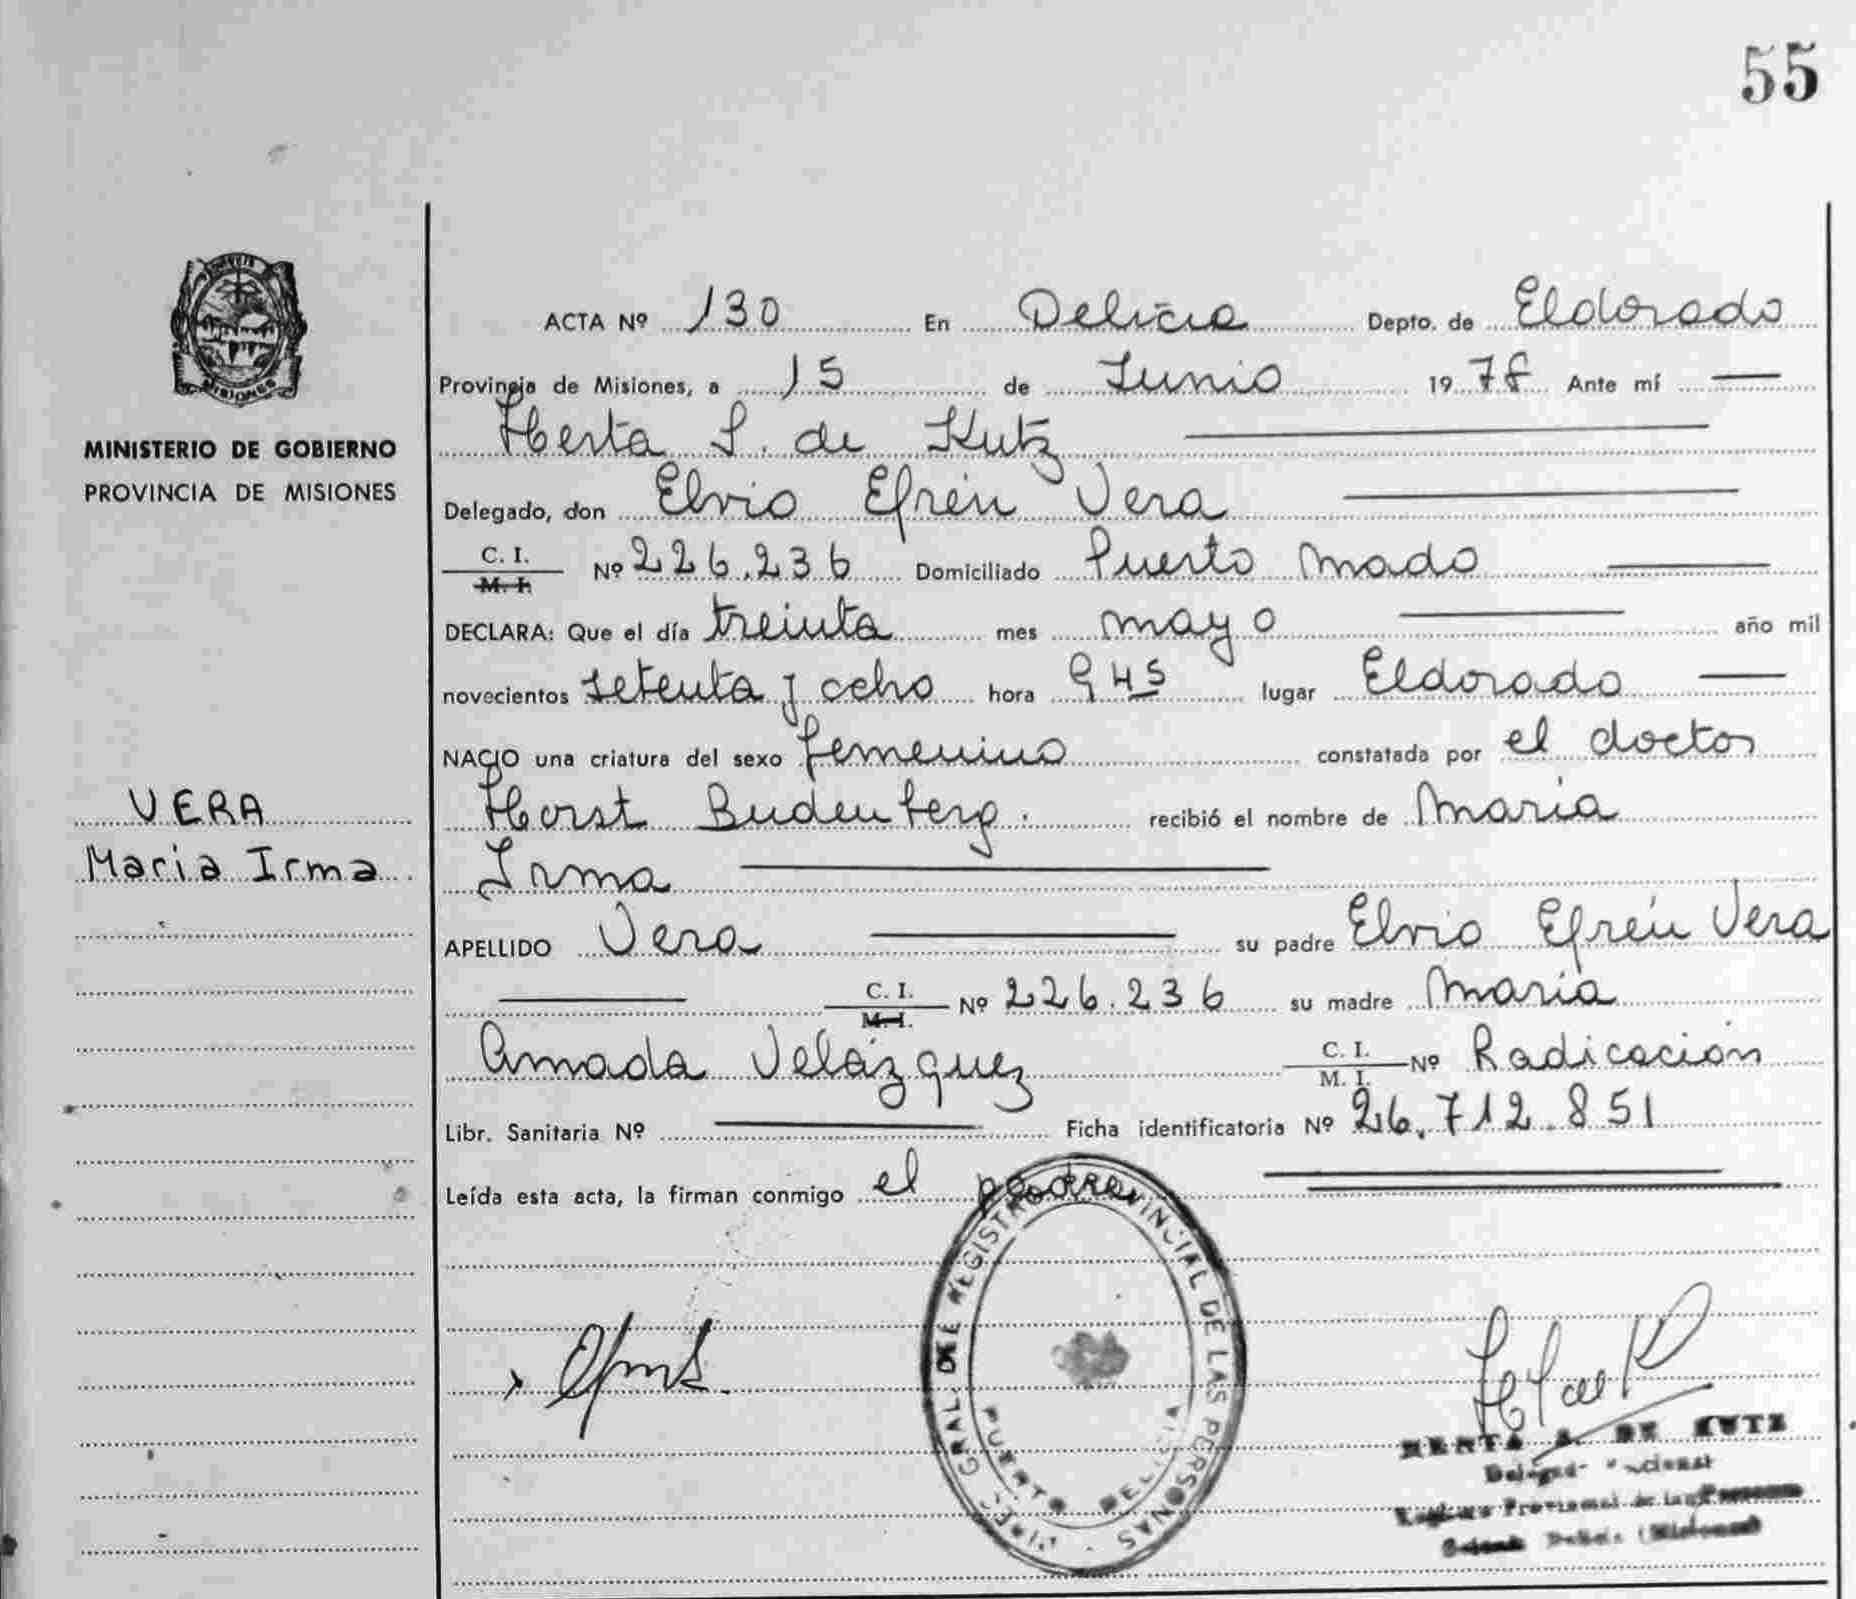 55
MISIONES
MINISTERIO DE GOBIERNO
PROVINCIA DE MISIONES
VERA
Maria Irma
ACTA Nº 130 En Delicia Depto. de Eldorado
Provincia de Misiones, a 15 de Junio 1978 Ante mí
Herta S. de Kutz
Delegado, don Elvio Efrén Vera
C. I.
M. I. Nº 226.236 Domiciliado Puerto Mado
DECLARA: Que el día treinta mes mayo año mil
novecientos setenta y ocho hora 9 45 lugar Eldorado
NACIO una criatura del sexo femenino constatada por el doctor
Horst Budenberg. recibió el nombre de María
Irma
APELLIDO Vera su padre Elvio Efrén Vera
C. I.
M. I. Nº 226.236 su madre María
Amada Velázquez C. I. Nº Radicación
M. I.
Libr. Sanitaria Nº Ficha identificatoria Nº 26.712.851
Leída esta acta, la firman conmigo el padre
GRAL. DEL REGISTRO PROVINCIAL DE LAS PERSONAS
PUERTO DELICIA
DE KUTZ
Provincial de las